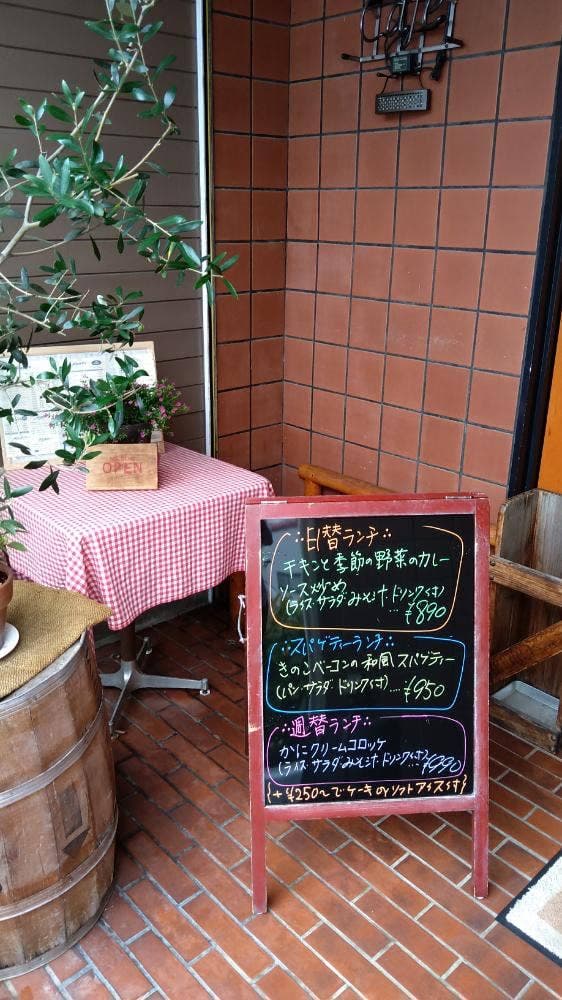 OPEN
日替ランチ
チキンと季節の野菜のカレー
ソース炒め
(ライス・サラダ・みそ汁・ドリンク付) … ¥890
スパゲティーランチ
きのこベーコンの和風スパゲティー
(パン・サラダ・ドリンク付) … ¥950
週替ランチ
かにクリームコロッケ
(ライス・サラダ・みそ汁・ドリンク付) … ¥990
{+¥250~でケーキorソフトアイス付}